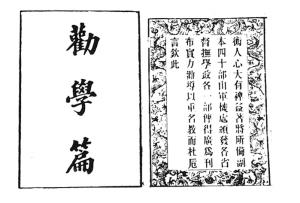 術人心大有裨益著將所備副
本四十部由軍機處頒發各省
督撫學政各一部俾得廣爲刊
布實力勸導以重名教而杜卮
言欽此
勸學篇